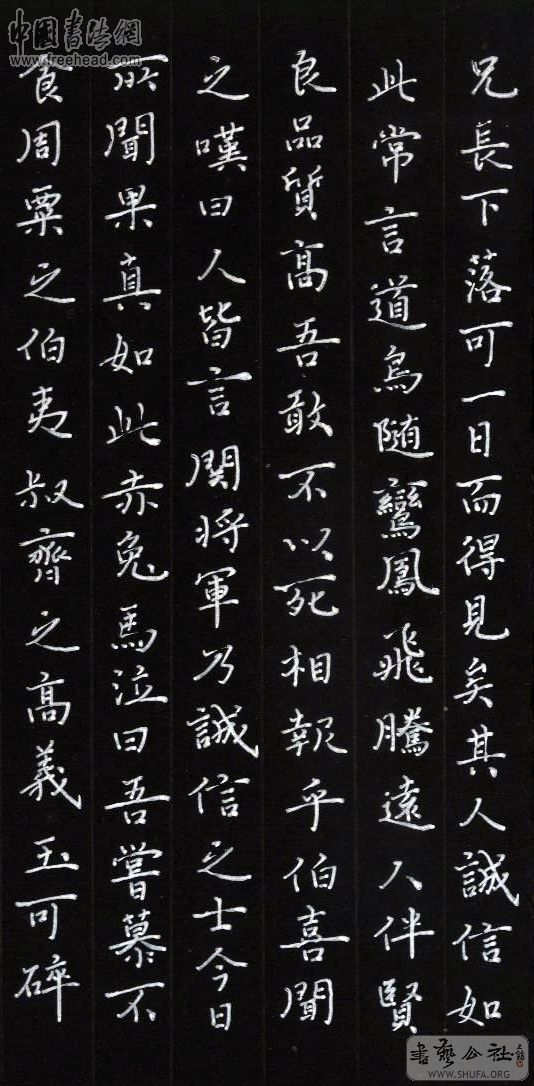 兄長下落可一日而得見矣其人誠信如
此常言道鳥随鸞鳳飛騰遠人伴賢
良品質高吾敢不以死相報乎伯喜聞
之嘆曰人皆言関将軍乃誠信之士今日
所聞果真如此赤兔馬泣曰吾嘗慕不
食周粟之伯夷叔齊之高義玉可碎
中國書法網
www.freehead.com
書藝公社
WWW.SHUFA.ORG